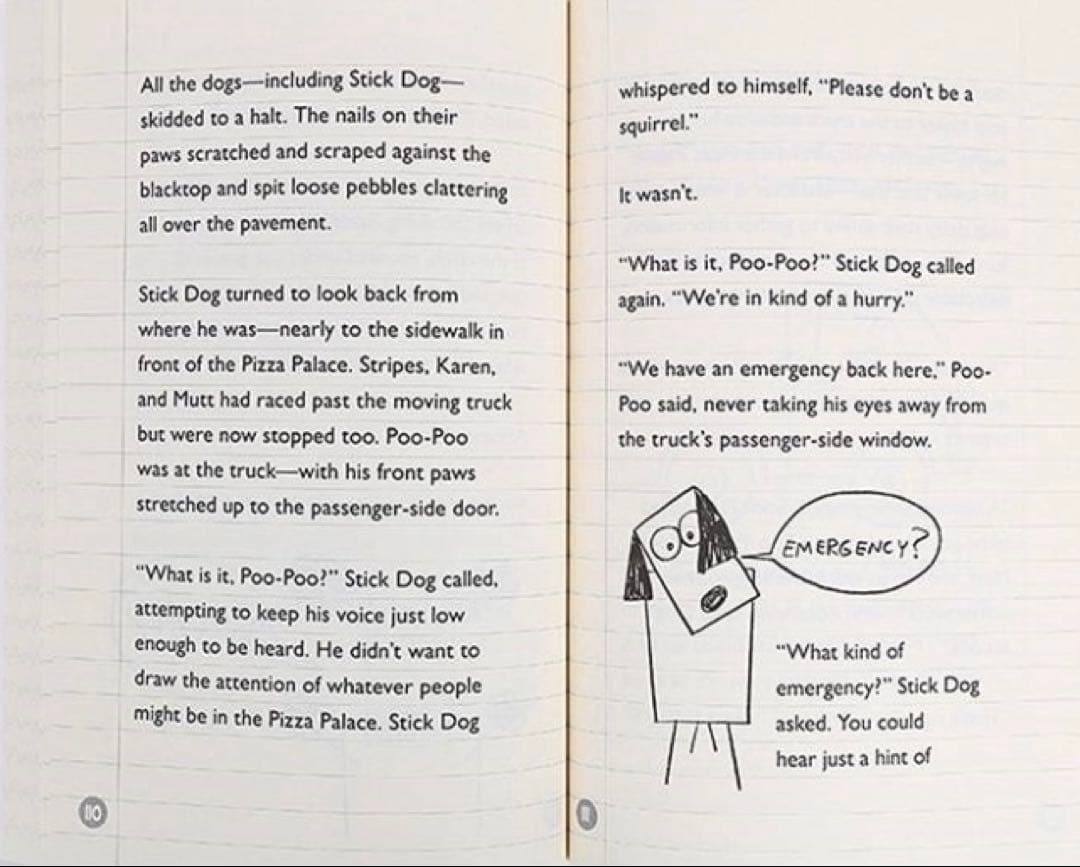 All the dogs—including Stick Dog—
skidded to a halt. The nails on their
paws scratched and scraped against the
blacktop and spit loose pebbles clattering
all over the pavement.
Stick Dog turned to look back from
where he was—nearly to the sidewalk in
front of the Pizza Palace. Stripes, Karen,
and Mutt had raced past the moving truck
but were now stopped too. Poo-Poo
was at the truck—with his front paws
stretched up to the passenger-side door.
“What is it, Poo-Poo?” Stick Dog called,
attempting to keep his voice just low
enough to be heard. He didn’t want to
draw the attention of whatever people
might be in the Pizza Palace. Stick Dog
110
whispered to himself, “Please don’t be a
squirrel.”
It wasn’t.
“What is it, Poo-Poo?” Stick Dog called
again. “We’re in kind of a hurry.”
“We have an emergency back here,” Poo-
Poo said, never taking his eyes away from
the truck’s passenger-side window.
EMERGENCY?
“What kind of
emergency?” Stick Dog
asked. You could
hear just a hint of